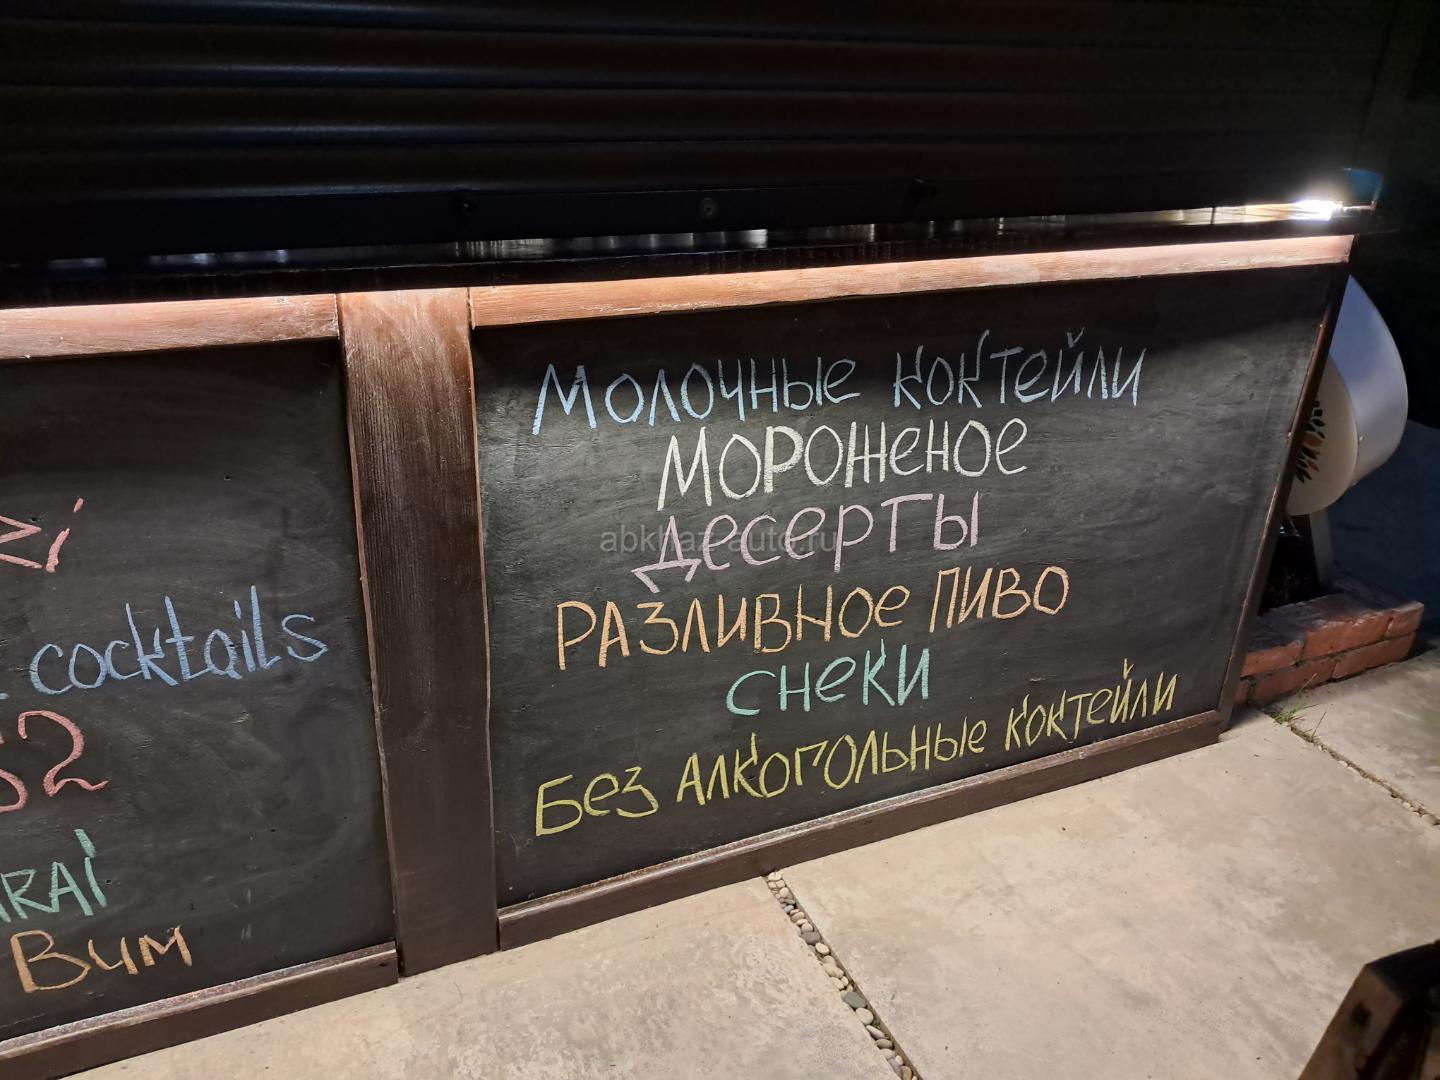 cocktails
Вим
Молочные коктейли
Мороженое
Десерты
Разливное пиво
Снеки
Без алкогольные коктейли
abkhaz-auto.ru